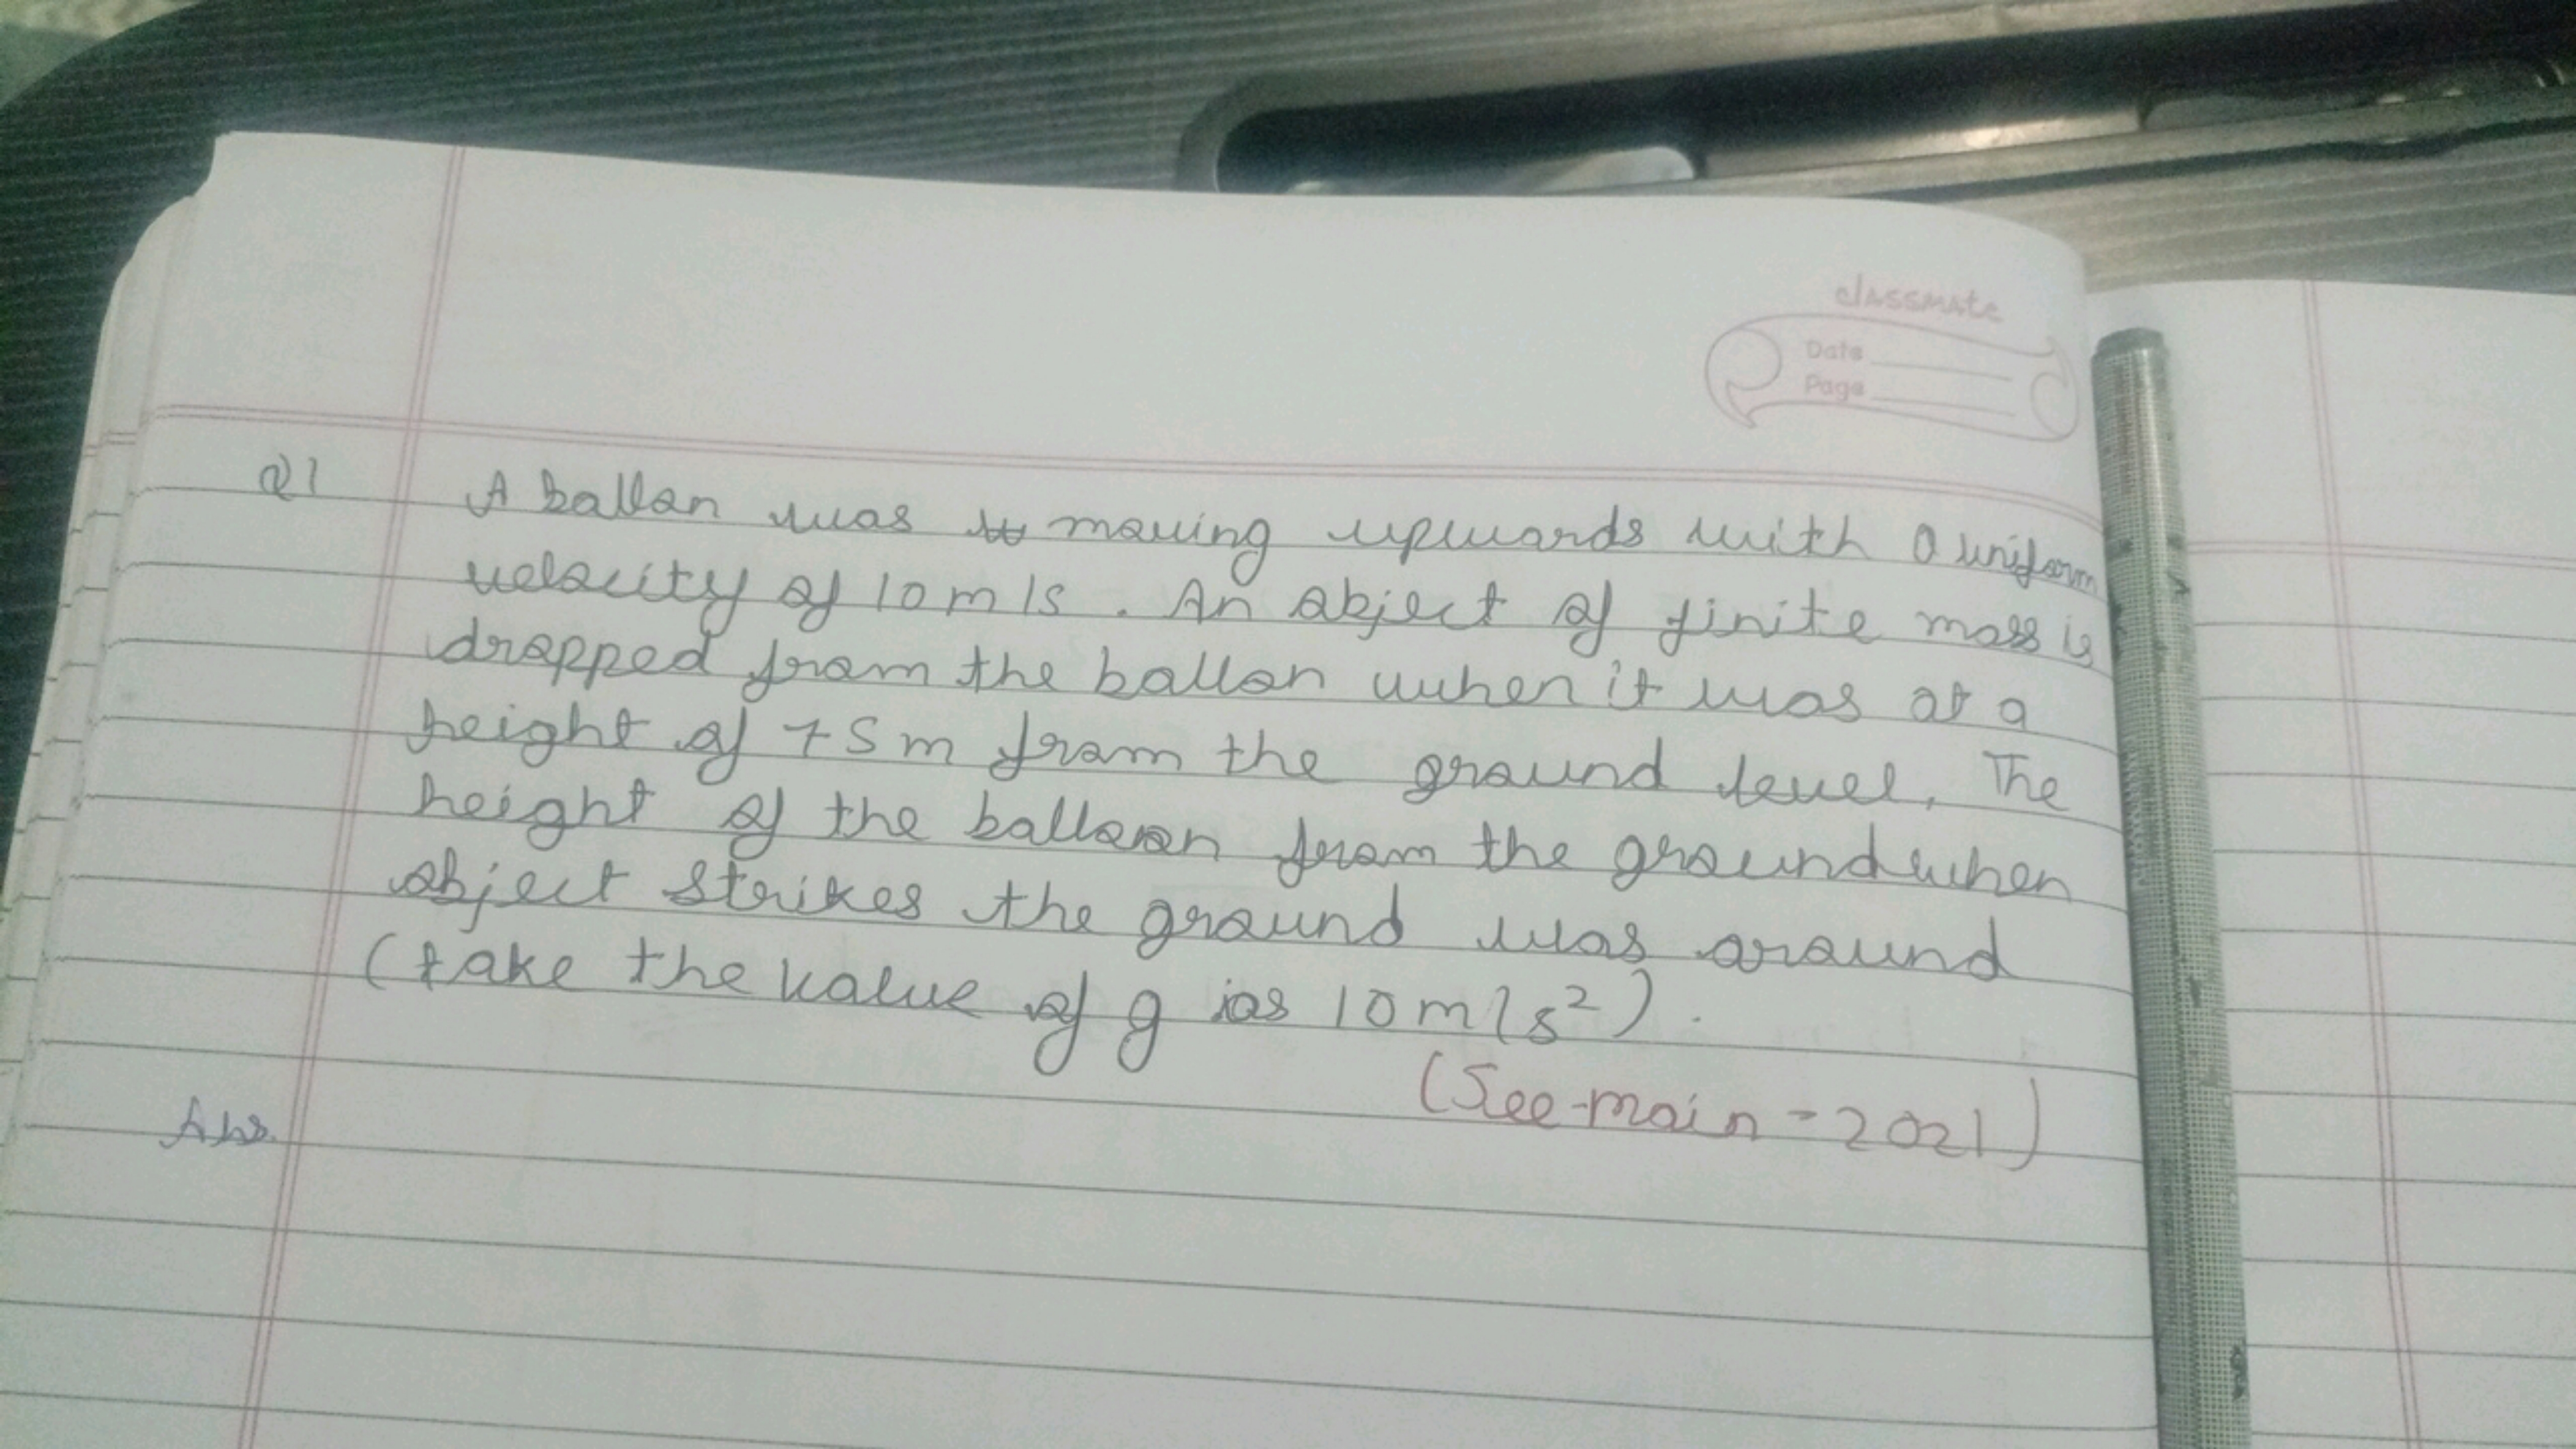 classmate
Date
Page
Q1 A ballon was moving upwards with a uniform
velocity of 10 m/s. An object of finite mass is
dropped from the ballon when it was at a
height of 75 m from the ground level. The
height of the balloon from the ground when
object strikes the ground was around
(take the value of g as 10 m/s²).
(Jee-main-2021)
Ans.